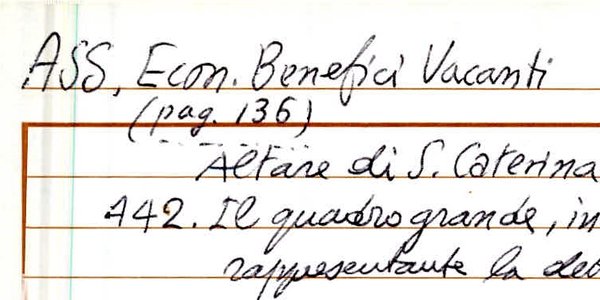 ASS, Econ. Benefici Vacanti
(pag. 136)
Altare di S. Caterina
442. Il quadro grande, in
rappresentante la deb